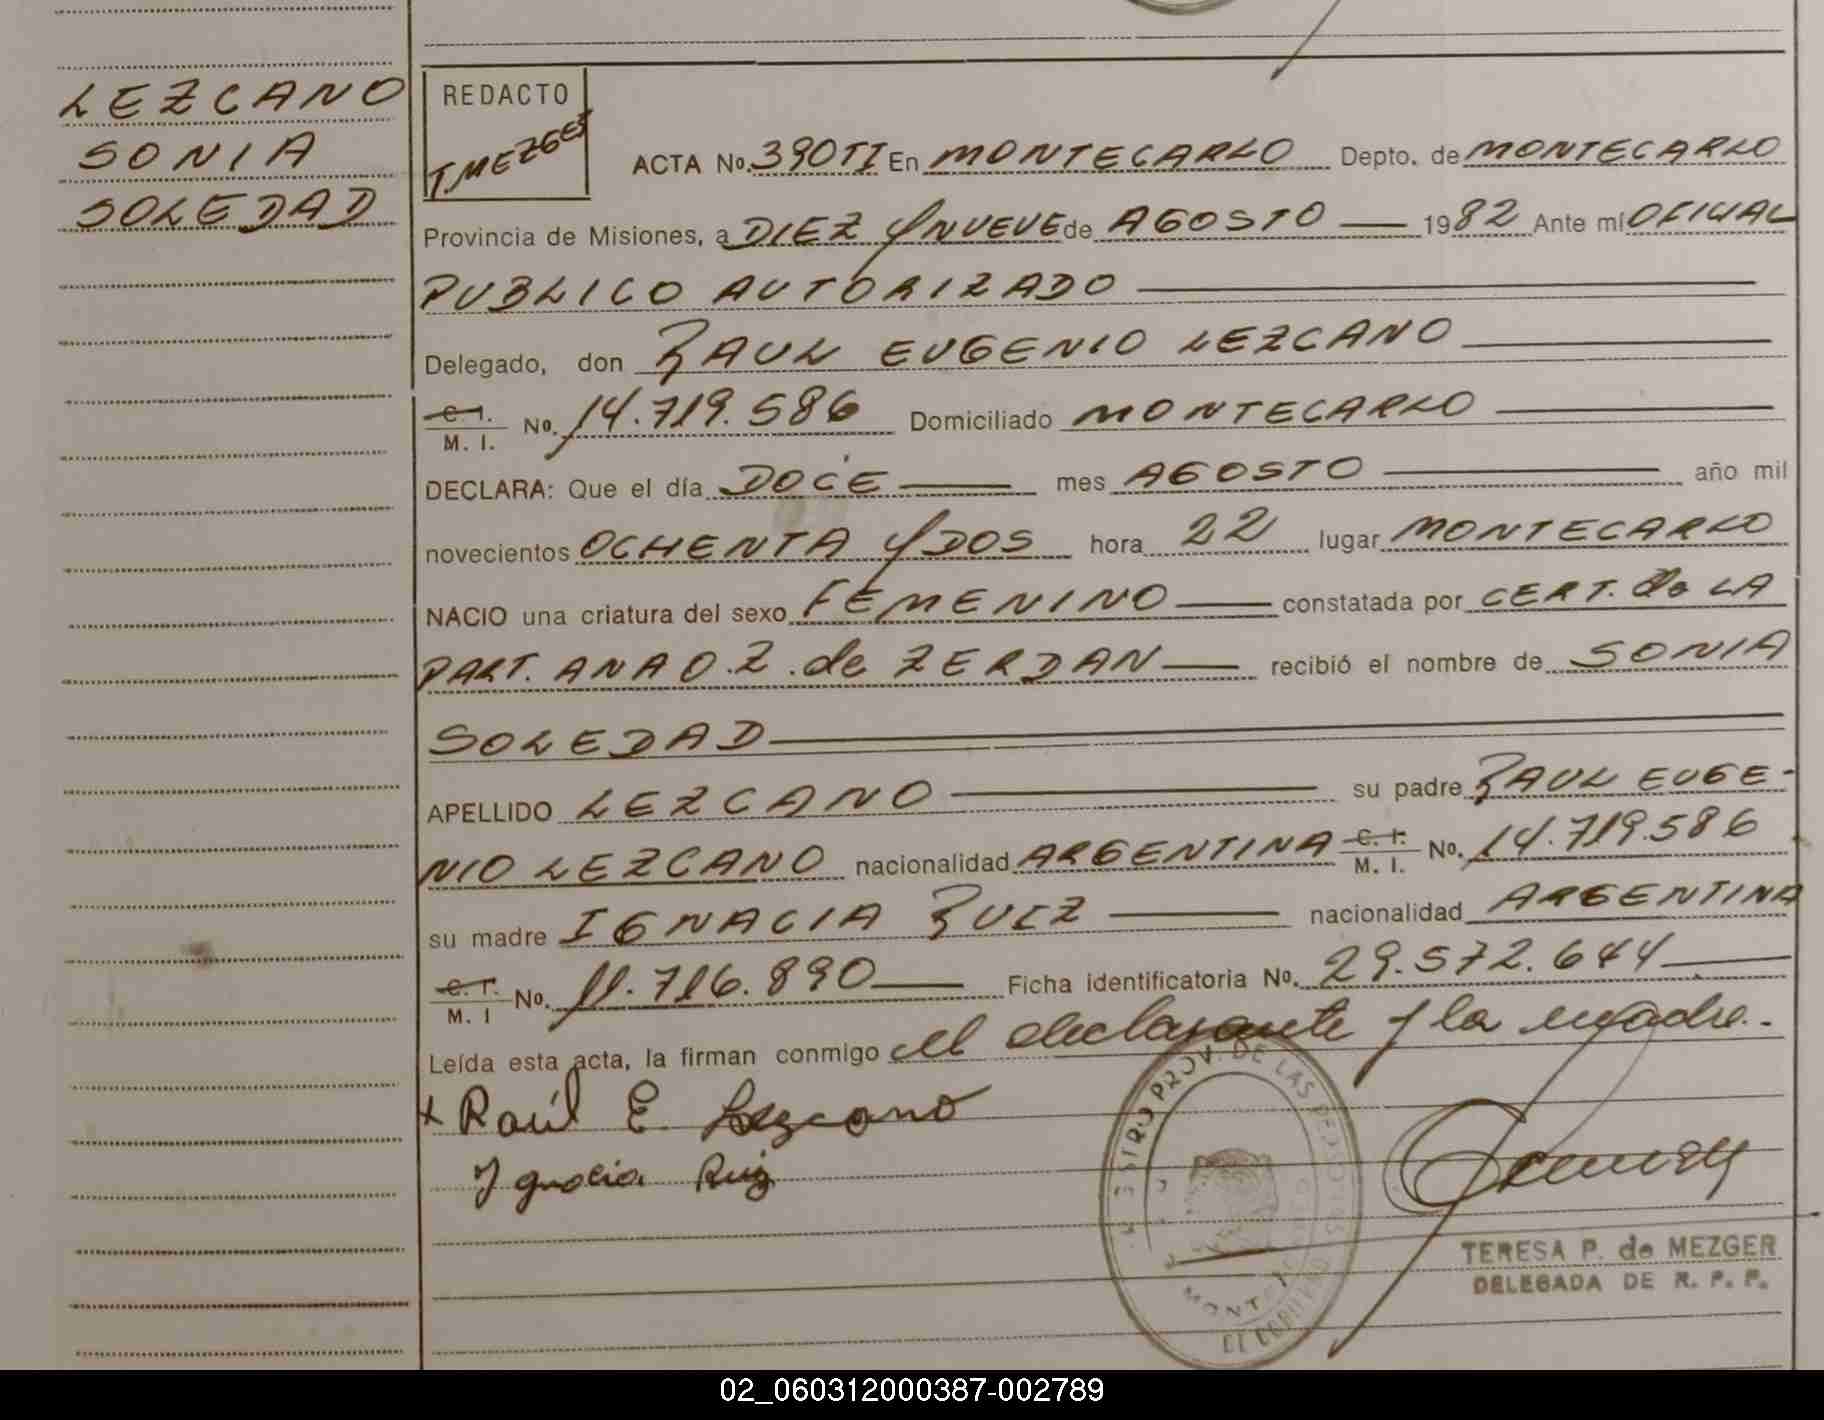 LEZCANO
SONIA
SOLEDAD
REDACTO
T.MEZGER
ACTA No. 390TI En MONTECARLO Depto. de MONTECARLO
Provincia de Misiones, a DIEZ Y NUEVE de AGOSTO 1982 Ante mí OFICIAL
PUBLICO AUTORIZADO
Delegado, don RAUL EUGENIO LEZCANO
C. I. M. I. No. 14.719.586 Domiciliado MONTECARLO
DECLARA: Que el día DOCE mes AGOSTO año mil
novecientos OCHENTA Y DOS hora 22 lugar MONTECARLO
NACIO una criatura del sexo FEMENINO constatada por CERT. de LA
PART. ANA O. Z. de ZERDAN recibió el nombre de SONIA
SOLEDAD
APELLIDO LEZCANO su padre RAUL EUGE-
NIO LEZCANO nacionalidad ARGENTINA C. I. M. I. No. 14.719.586
su madre IGNACIA RUIZ nacionalidad ARGENTINA
C. I. M. I No. 11.716.890 Ficha identificatoria No. 29.572.644
Leída esta acta, la firman conmigo el declarante y la madre.-
x Raúl E. Lezcano
Ignacia Ruiz
PROV. DE LAS PERSONAS
TERESA P. de MEZGER
DELEGADA DE R. P. P.
02_060312000387-002789